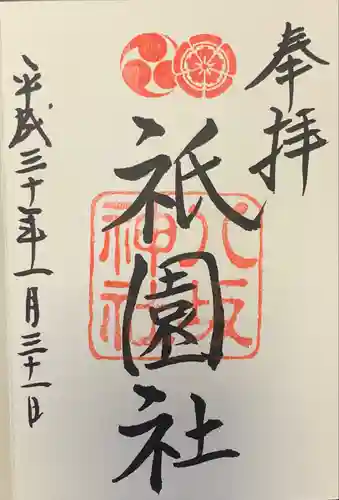 奉拝
祇園社
八坂
神社
平成三十年一月三十一日